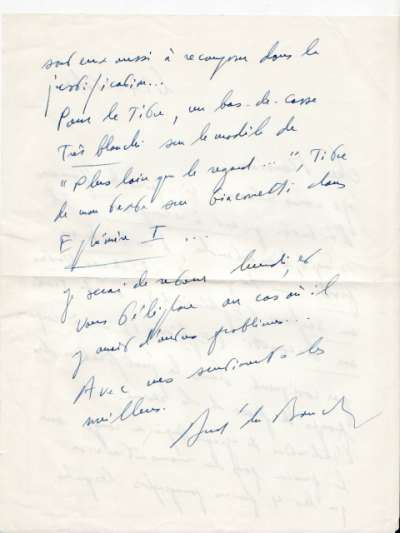 sont eux aussi à recomposer dans la
justification...
Pour le Titre, un bas-de-casse
Très blanchi sur le modèle de
"Plus loin que le regard...", Titre
de mon texte sur Giacometti dans
Ephémère I ...
Je serai de retour lundi, et
vous téléphone au cas où il
y aurait d'autres problèmes...
Avec mes sentiments les
meilleurs.
André du Bouchet